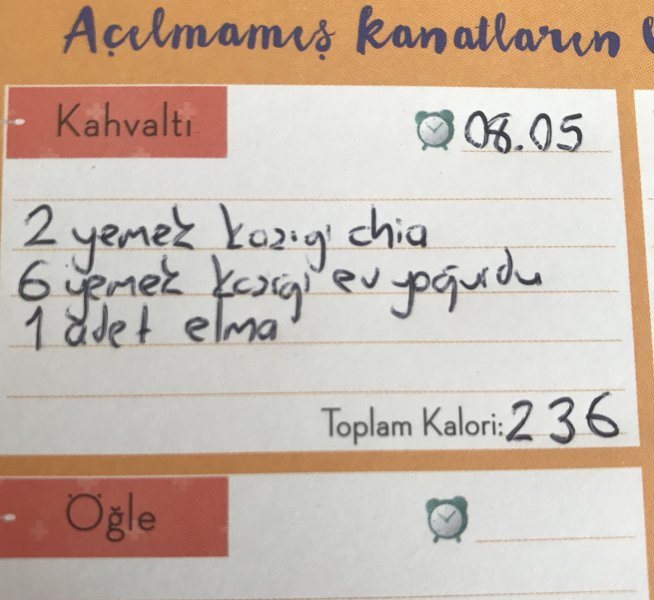 Açılmamış kanatların
Kahvaltı 08.05
2 yemek kaşığı chia
6 yemek kaşığı ev yoğurdu
1 adet elma
Toplam Kalori: 236
Öğle